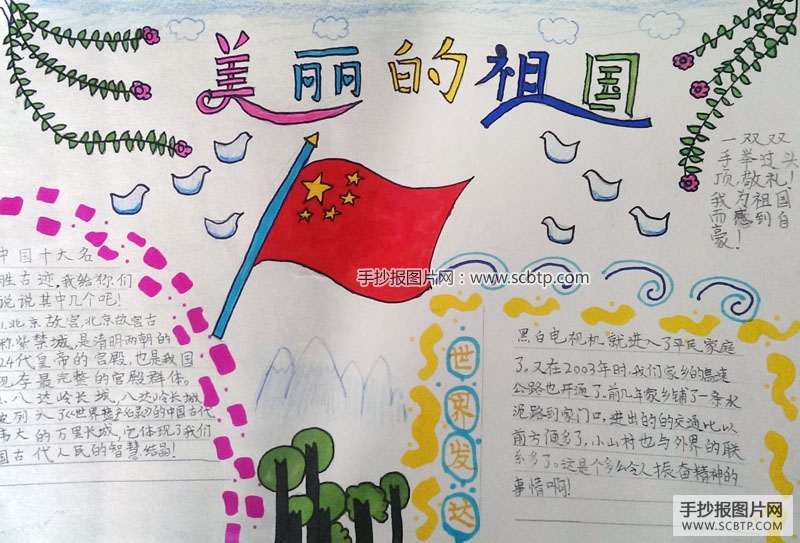 美丽的祖国
一双双
手举过头
顶,敬礼!
我为祖国
而感到自
豪!
手抄报图片网:www.scbtp.com
中国十大名
胜古迹,我给你们
说说其中几个吧!
1.北京故宫,北京故宫古
称紫禁城,是清明两朝的
24代皇帝的宫殿,也是我国
现存最完整的宫殿群体。
2.八达岭长城,八达岭长城
被列入《世界遗产名录》的中国古代
伟大的万里长城,它体现了我们
国古代人民的智慧结晶!
世界发达
黑白电视机就进入了平民家庭
了。又在2003年时,我们家乡的高速
公路也开通了。前几年家乡铺了一条水
泥路到家门口,进出的的交通比以
前方便多了,小山村也与外界的联
系多了。这是个多么令人振奋精神的
事情啊!
手抄报图片网
WWW.SCBTP.COM